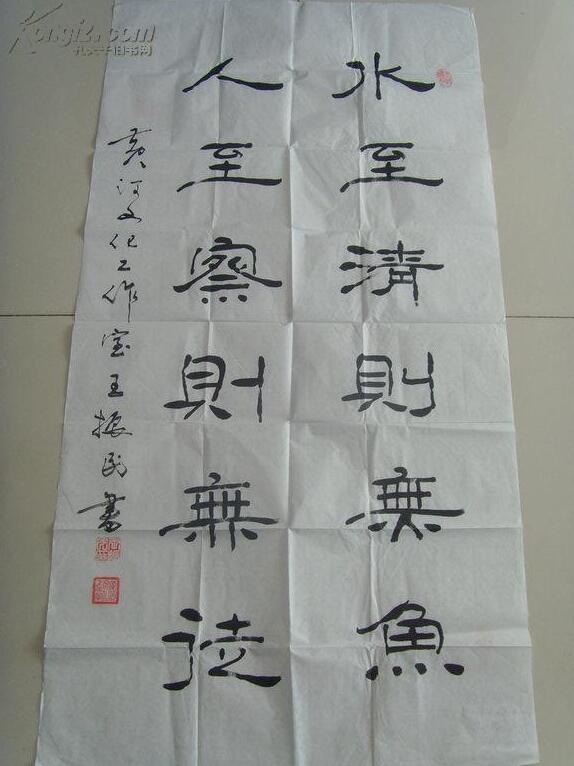 水至清則無魚
人至察則無徒
黄河文化工作室王振民書
Kongfz.com
孔夫子旧书网